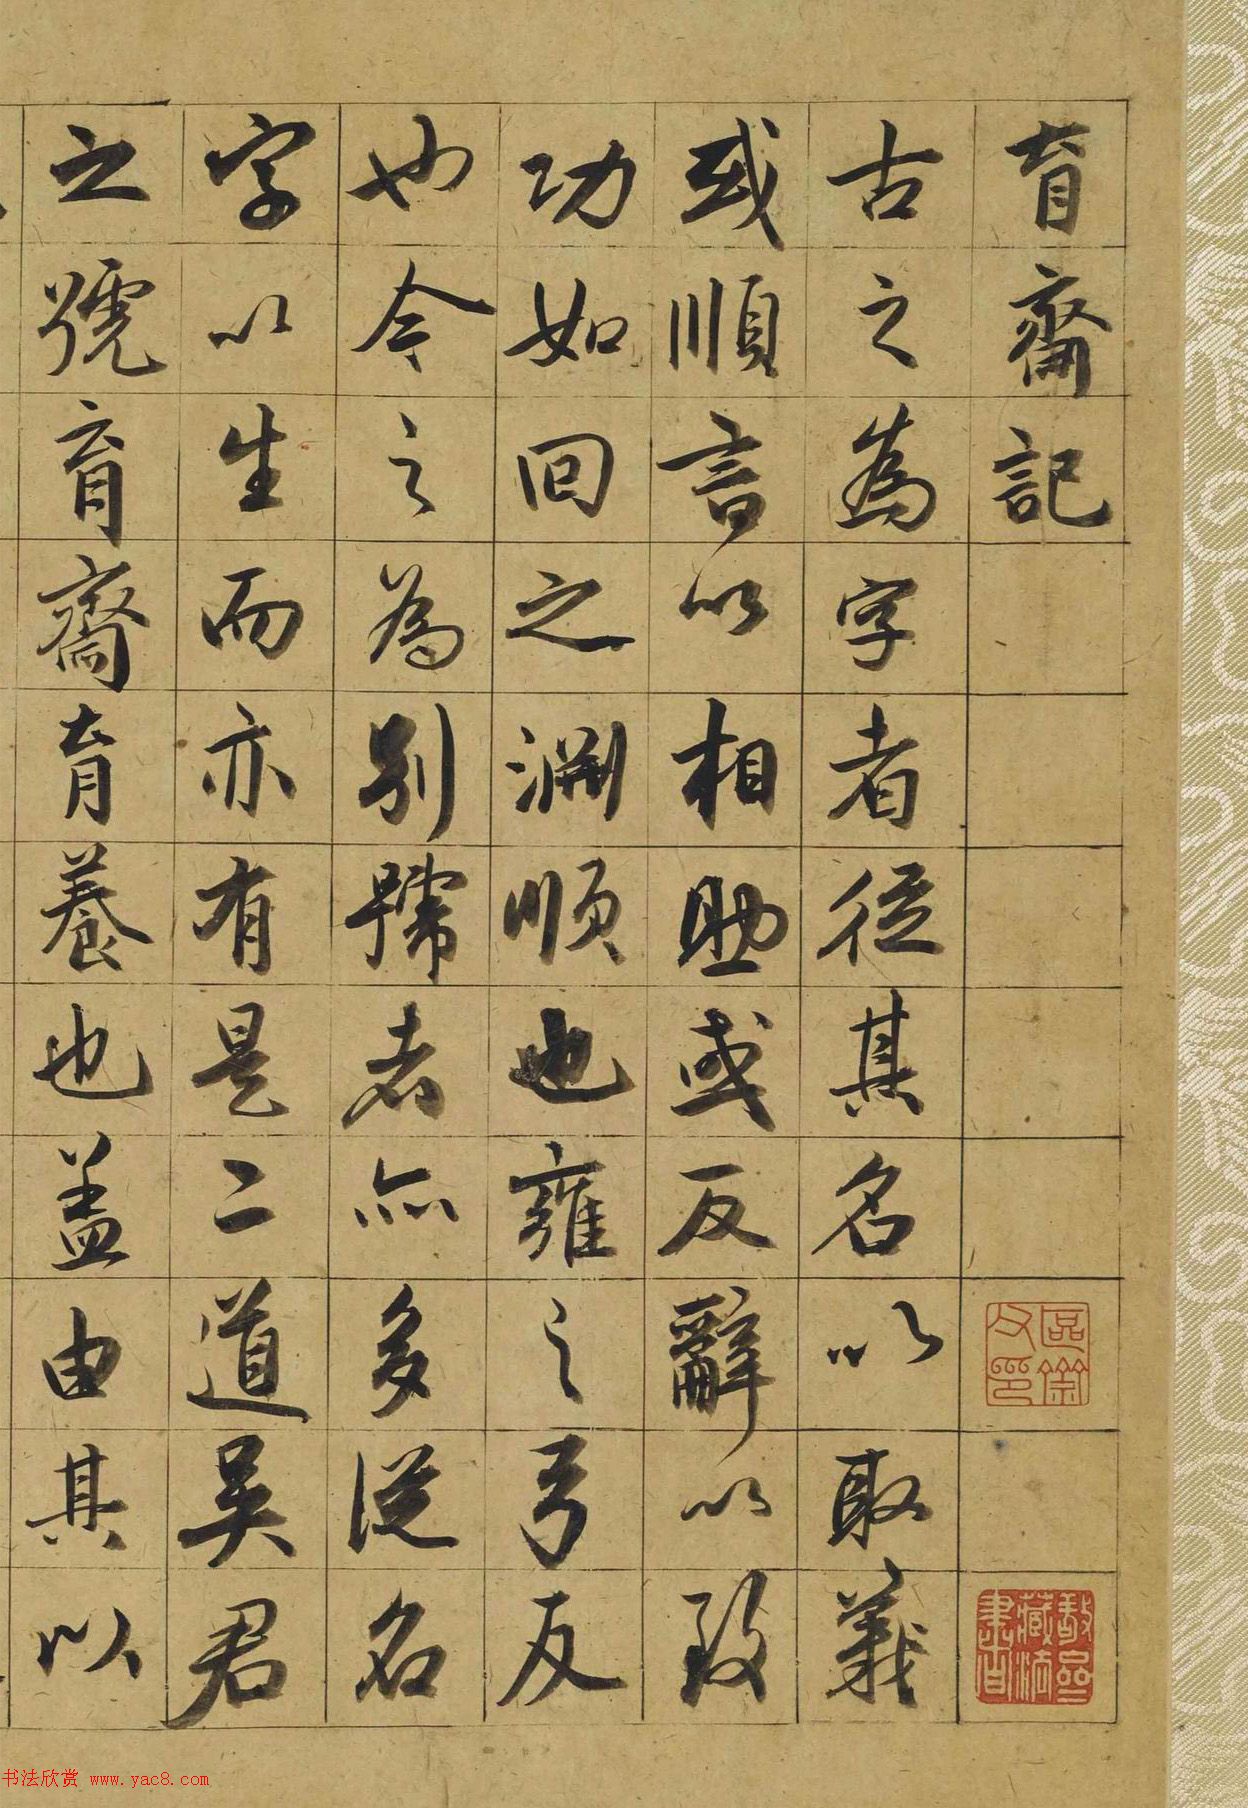 育齋記
古之為字者從其名以取義
或順言以相助或反辭以致
功如回之淵順也雍之弓反
也今之為別號者亦多從名
字以生而亦有是二道吳君
之號育齋育養也盖由其以
书法欣赏 www.yac8.com